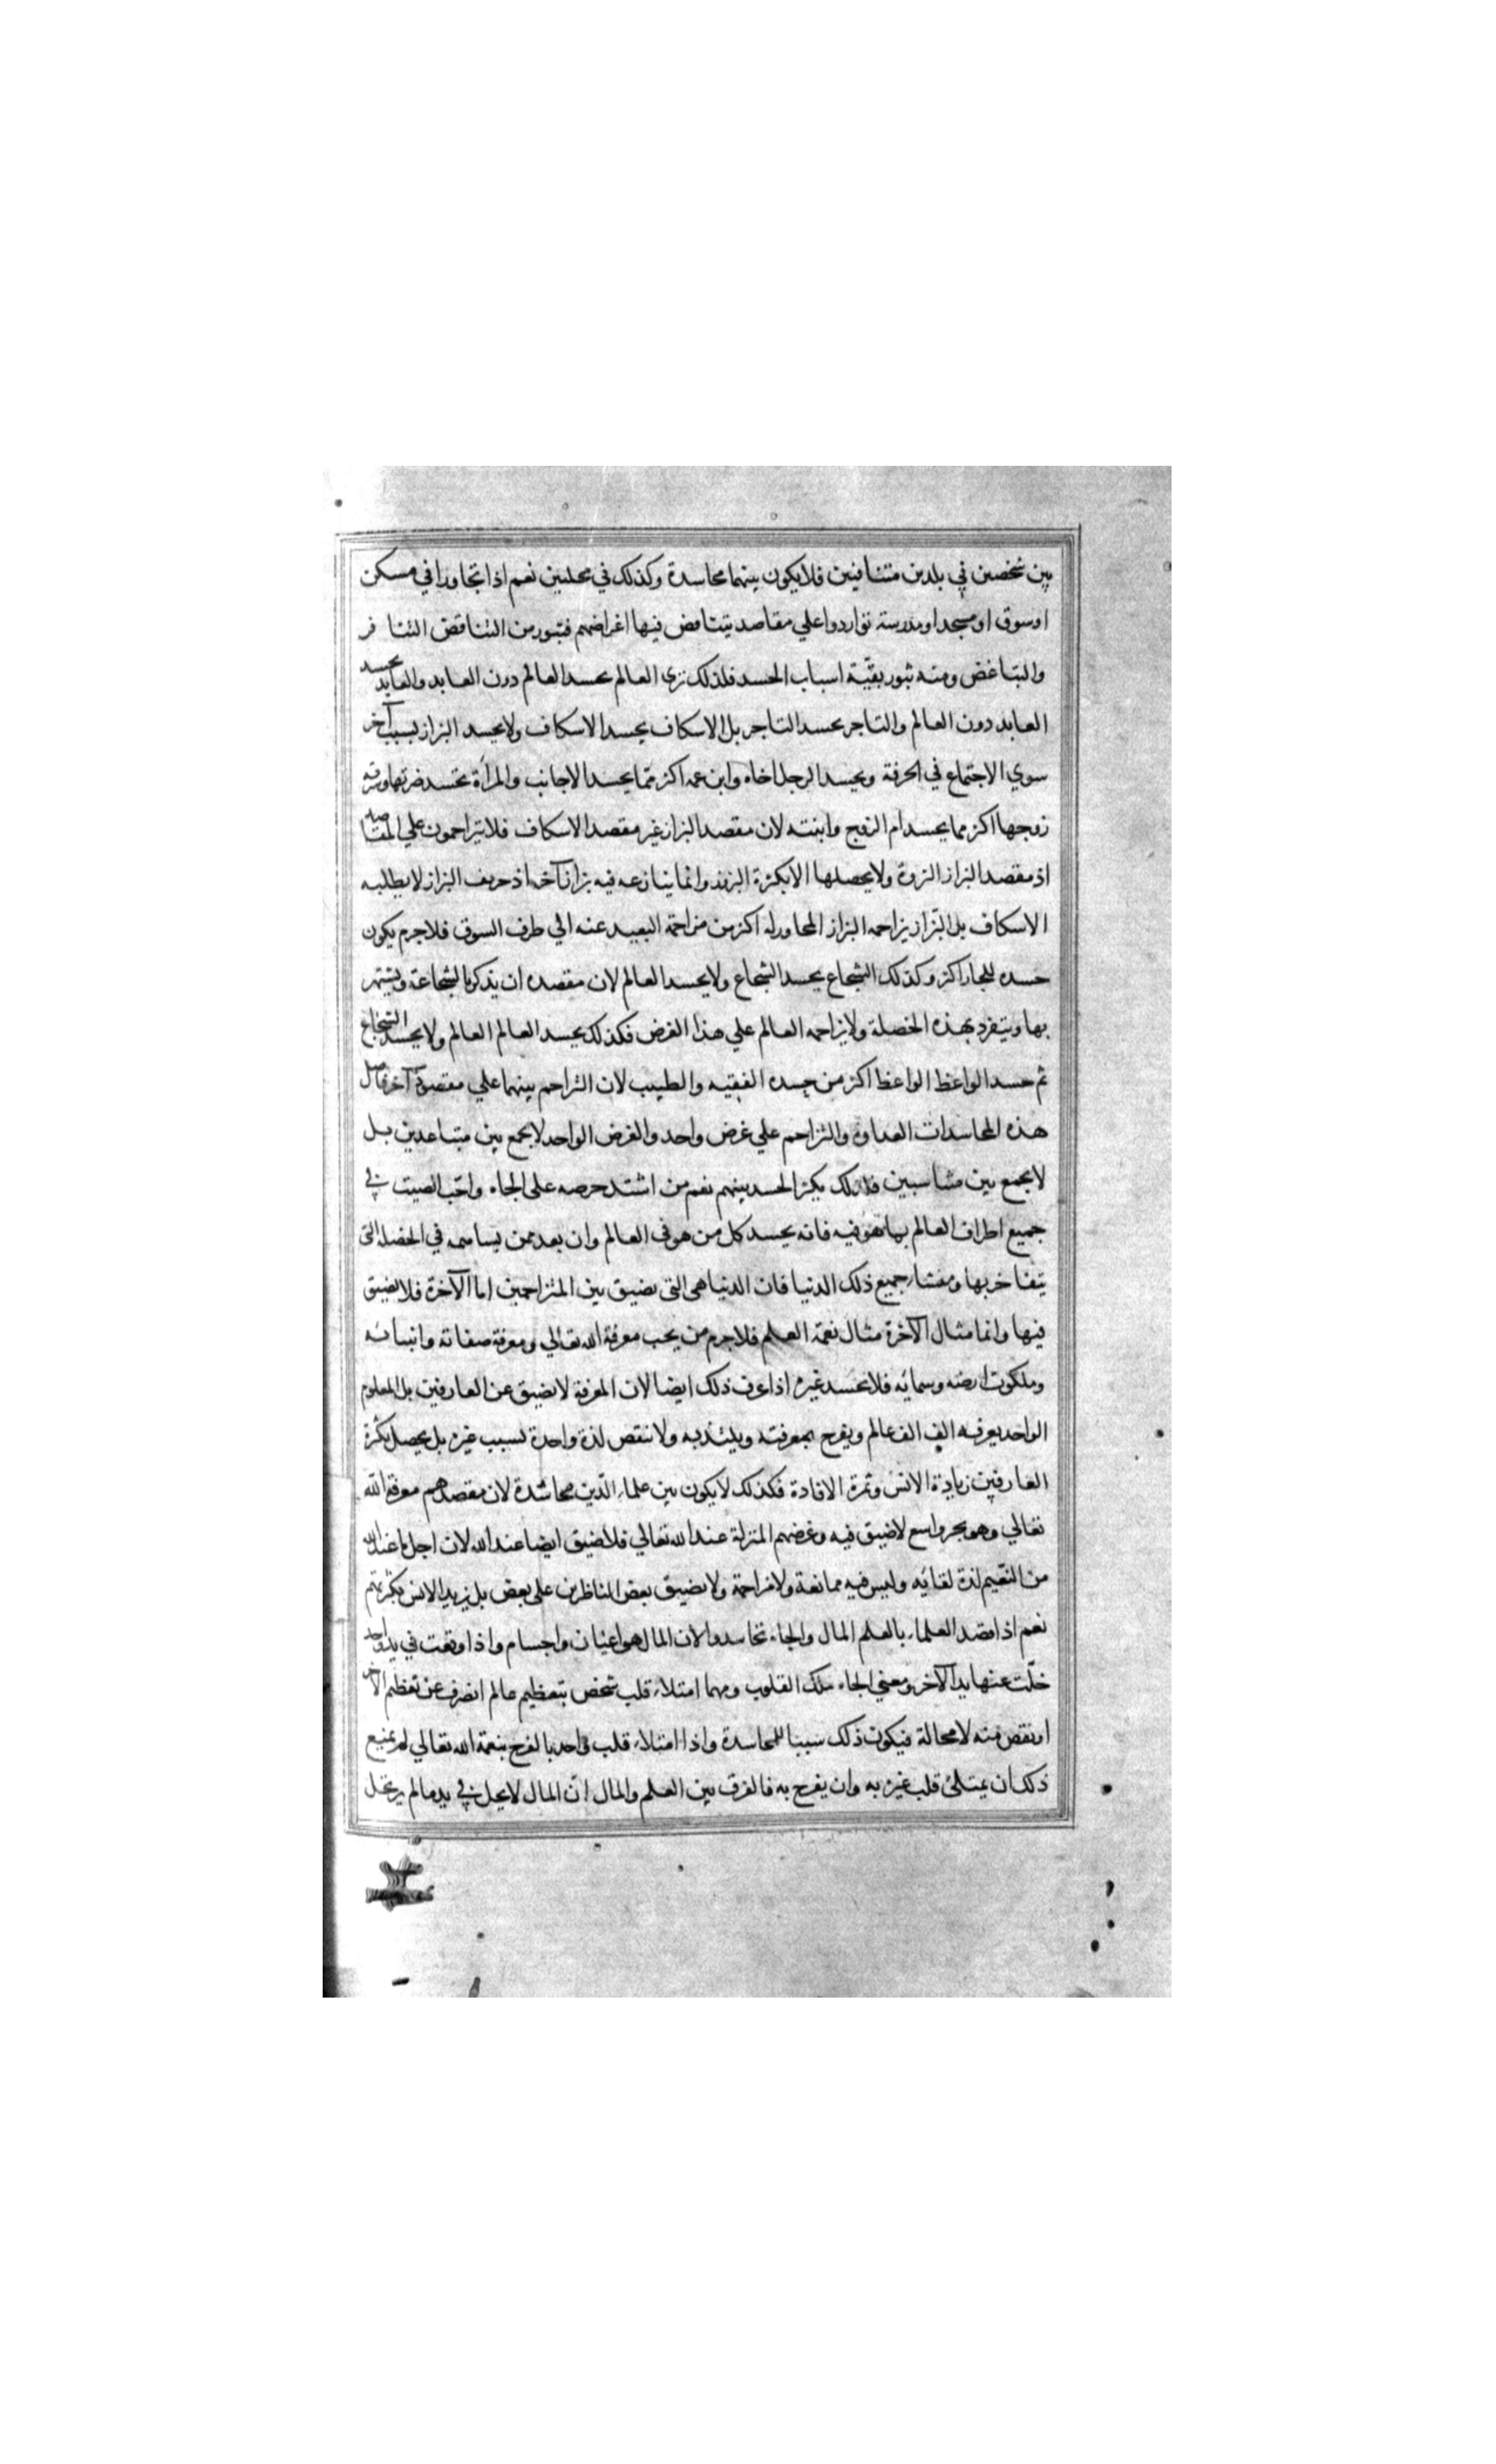 بين شخصين في بلدين متنافيين فلا يكون بينهما محاسدة وكذلك في محلتين نعم اذا تجاورا في مسكن
او سوق او مسجد او مدرسة تواردوا علي مقاصد يتناقض فيها اغراضهم فيثور من التناقض التنافر
والتباغض ومنه يثور بقيّة اسباب الحسد فلذلك تري العالم يحسد العالم دون العابد والعابد يحسد
العابد دون العالم والتاجر يحسد التاجر بل الاسكاف يحسد الاسكاف ولا يحسد البزاز بسبب آخر
سوي الاجتماع في الحرفة ويحسد الرجل اخاه وابن عمه اكثر ممّا يحسد الاجانب والمرأة تحسد ضرتها وسرية
زوجها اكثر مما يحسد ام الزوج وابنته لان مقصد البزاز غير مقصد الاسكاف فلا يتزاحمون علي المقاصد
اذ مقصد البزاز الثروة ولا يحصلها الا بكثرة الزبون وانما ينازعه فيه بزاز آخر اذ حريف البزاز لا يطلبه
الاسكاف بل البّزاز يزاحمه البزاز المجاور له اكثر من مزاحمة البعيد عنه الي طرف السوق فلا جرم يكون
حسده للجار اكثر وكذلك الشجاع يحسد الشجاع ولا يحسد العالم لان مقصده ان يذكر بالشجاعة ويشتهر
بها ويتفرد بهذه الخصلة ولا يزاحمه العالم علي هذا الغرض فكذلك يحسد العالم العالم ولا يحسد الشجاع
ثم حسد الواعظ الواعظ اكثر من حسده الفقيه والطبيب لان التزاحم بينهما علي مقصود آخر فاصل
هذه المحاسدات العداوة والتزاحم علي غرض واحد والغرض الواحد لا يجمع بين متباعدين بل
لا يجمع بين متناسبين فلذلك يكثر الحسد بينهم نعم من اشتد حرصه على الجاه واحّب الصيت في
جميع اطراف العالم بما هو فيه فانه يحسد كل من هو في العالم وان بعد ممن يساهمه في الخصلة التي
يتفاخر بها ومنشاء جميع ذلك الدنيا فان الدنيا هي التي تضيق بين المتزاحمين اما الآخرة فلا تضيق
فيها وانما مثال الآخرة مثال نعمة العلم فلا جرم من يحب معرفة الله تعالي ومعرفة صفاته وانبيائه
وملكوت ارضه وسمائه فلا يحسد غيره اذا عرف ذلك ايضا لان المعرفة لا تضيق عن العارفين بل المعلوم
الواحد يعرفه الف الف عالم ويفرح بمعرفته ويلتذ به ولا تنقص لذة واحدة بسبب غيره بل يحصل بكثرة
العارفين زيادة الانس وثمرة الافادة فكذلك لا يكون بين علماء الدّين محاسدة لان مقصدهم معرفة الله
تعالي وهو بحر واسع لا ضيق فيه وغرضهم المنزلة عند الله تعالي فلا ضيق ايضا عند الله لان اجل ما عند الله
من النّعيم لذة لقائه وليس فيه ممانعة ولا مزاحمة ولا يضيق بعض الناظرين على بعض بل يزيد الانس بكثرتهم
نعم اذا قصد العلماء بالعلم المال والجاه تحاسدوا لان المال هو اعيان واجسام واذا وقعت في يد واحد
خلّت عنها يد الآخر ومعني الجاه ملك القلوب ومهما امتلاء قلب شخص بتعظيم عالم انصرف عن تعظيم الآخر
او نقص منه لا محالة فيكون ذلك سببا للمحاسدة واذا امتلاء قلب واحد بالفرح بنعمة الله تعالي لم يمنع
ذلك ان يمتلئ قلب غيره به وان يفرح به فالفرق بين العلم والمال ان المال لا يحل في يد ما لم يرتحل